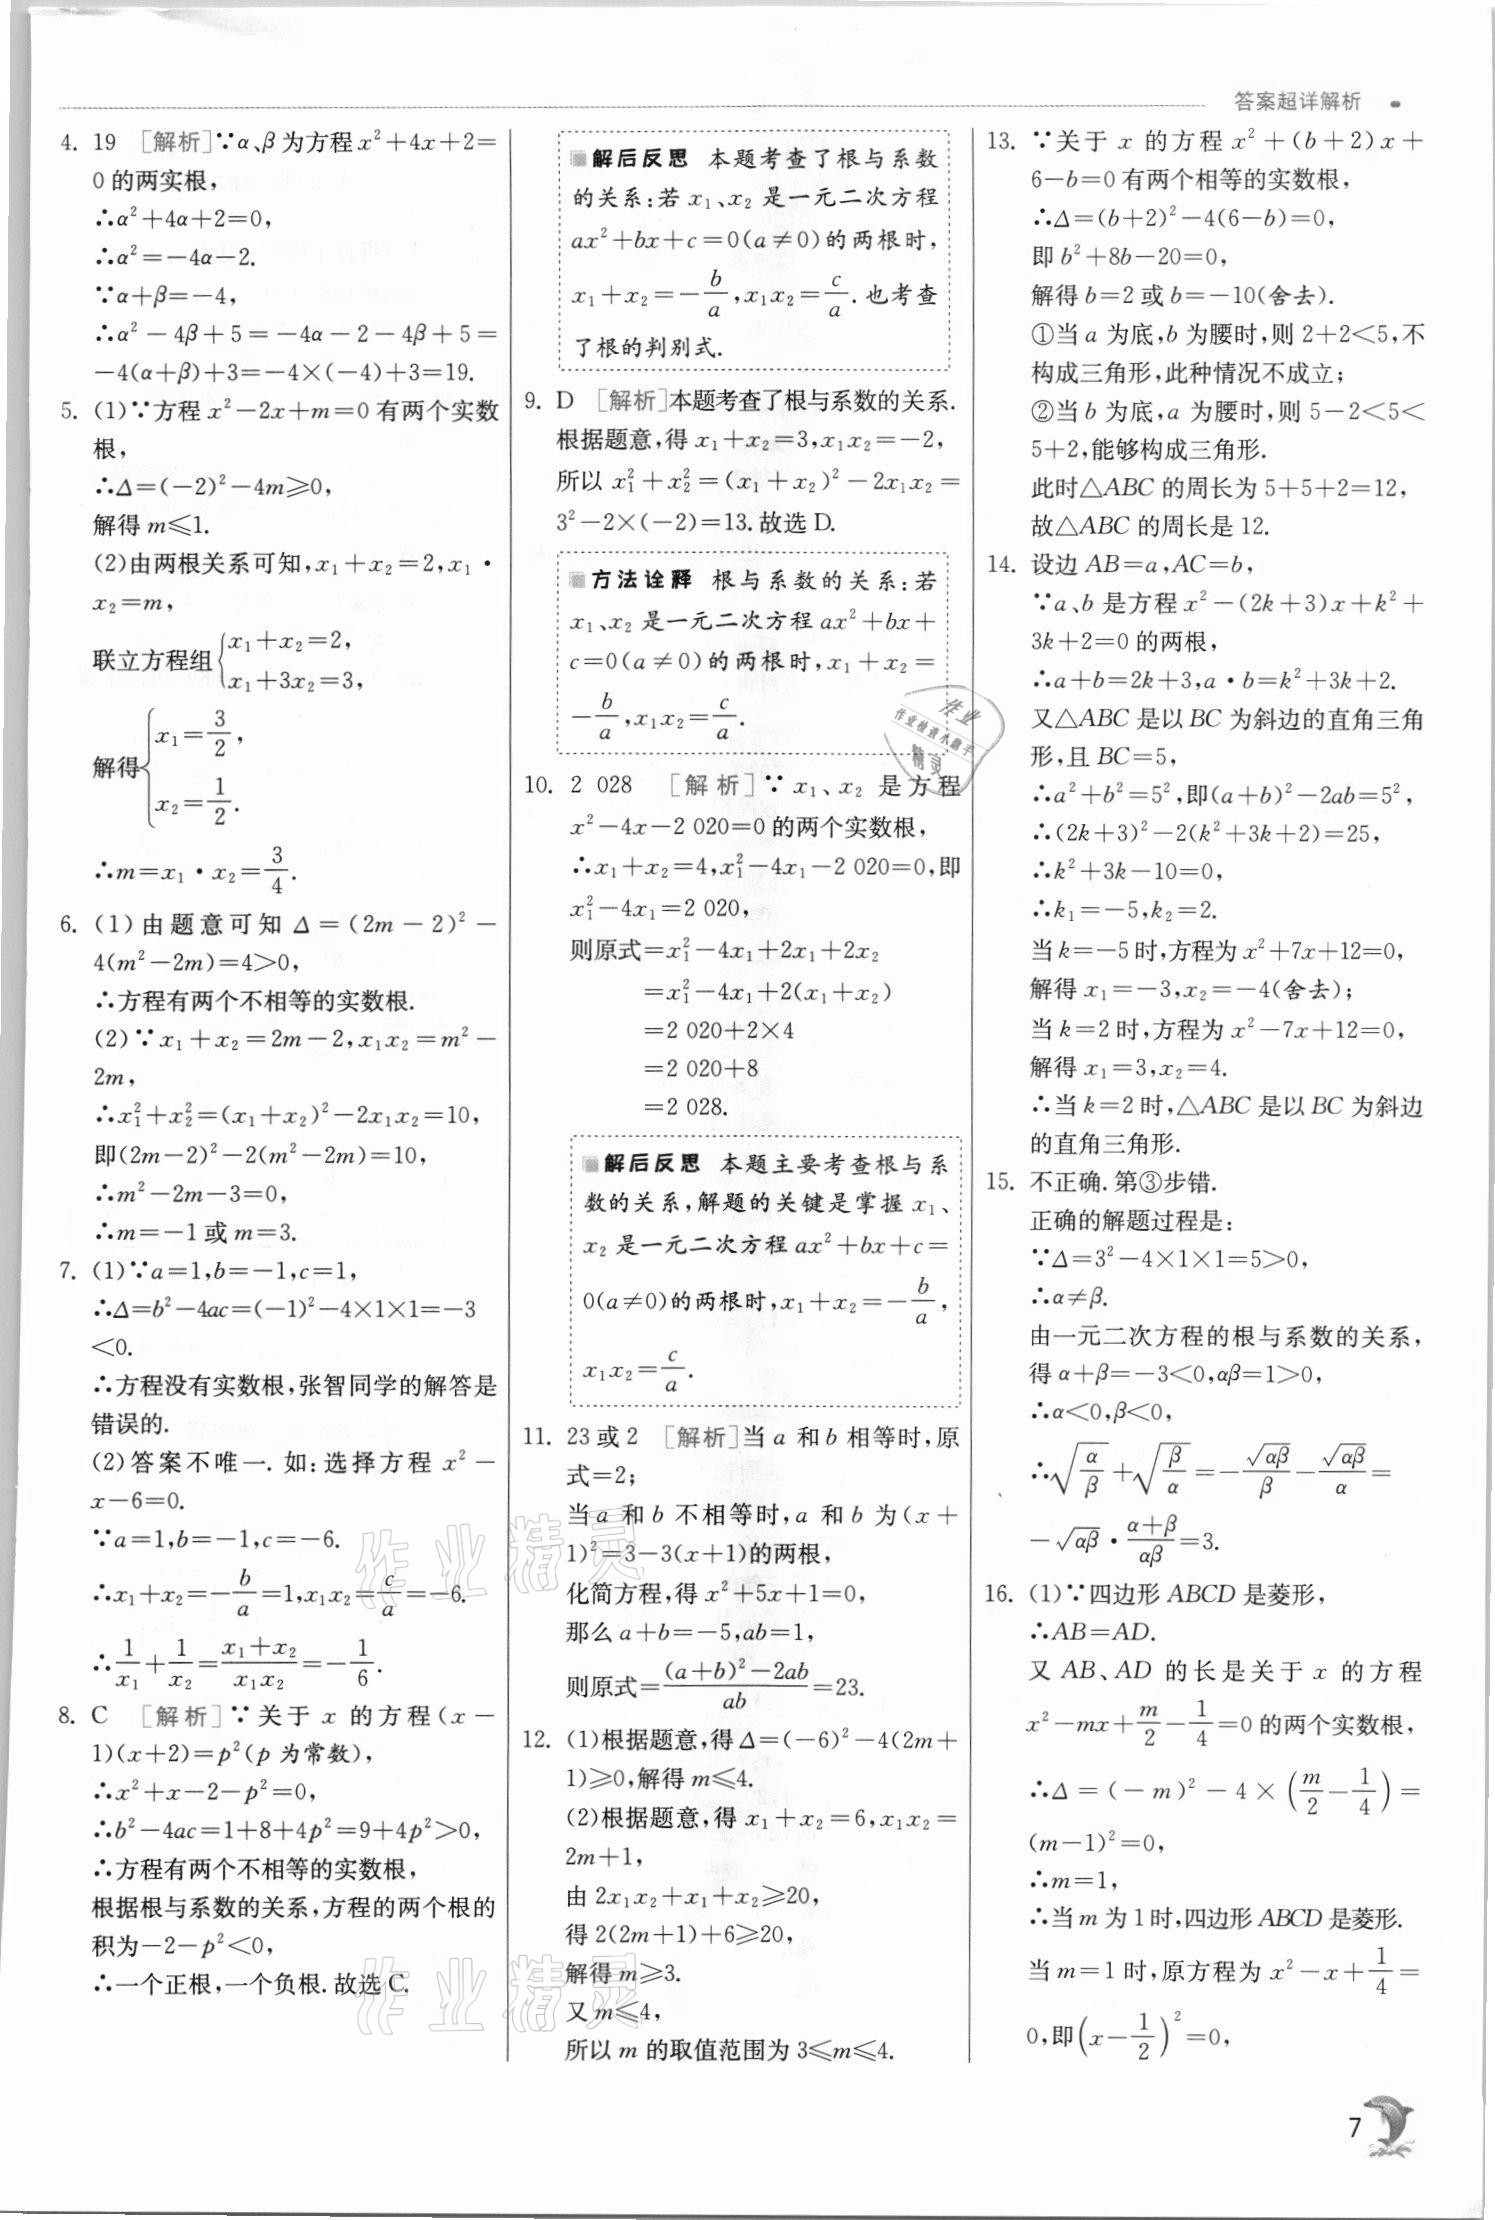 答案超详解析
4. 19 [解析]∵α、β为方程x²+4x+2=
0的两实根,
∴α²+4α+2=0,
∴α²=-4α-2.
∵α+β=-4,
∴α²-4β+5=-4α-2-4β+5=
-4(α+β)+3=-4×(-4)+3=19.
5. (1)∵方程x²-2x+m=0有两个实数
根,
∴Δ=(-2)²-4m⩾0,
解得m⩽1.
(2)由两根关系可知,x₁+x₂=2,x₁·
x₂=m,
联立方程组{x₁+x₂=2,
x₁+3x₂=3,
解得{x₁=3/2,
x₂=1/2.
∴m=x₁·x₂=3/4.
6. (1)由题意可知Δ=(2m-2)²-
4(m²-2m)=4>0,
∴方程有两个不相等的实数根.
(2)∵x₁+x₂=2m-2,x₁x₂=m²-
2m,
∴x₁²+x₂²=(x₁+x₂)²-2x₁x₂=10,
即(2m-2)²-2(m²-2m)=10,
∴m²-2m-3=0,
∴m=-1或m=3.
7. (1)∵a=1,b=-1,c=1,
∴Δ=b²-4ac=(-1)²-4×1×1=-3
<0.
∴方程没有实数根,张智同学的解答是
错误的.
(2)答案不唯一.如:选择方程x²-
x-6=0.
∵a=1,b=-1,c=-6.
∴x₁+x₂=-b/a=1,x₁x₂=c/a=-6.
∴1/x₁+1/x₂=(x₁+x₂)/(x₁x₂)=-1/6.
8. C [解析]∵关于x的方程(x-
1)(x+2)=p²(p为常数),
∴x²+x-2-p²=0,
∴b²-4ac=1+8+4p²=9+4p²>0,
∴方程有两个不相等的实数根,
根据根与系数的关系,方程的两个根的
积为-2-p²<0,
∴一个正根,一个负根.故选C.
解后反思 本题考查了根与系数
的关系:若x₁、x₂是一元二次方程
ax²+bx+c=0(a≠0)的两根时,
x₁+x₂=-b/a,x₁x₂=c/a.也考查
了根的判别式.
9. D [解析]本题考查了根与系数的关系.
根据题意,得x₁+x₂=3,x₁x₂=-2,
所以x₁²+x₂²=(x₁+x₂)²-2x₁x₂=
3²-2×(-2)=13.故选D.
方法诠释 根与系数的关系:若
x₁、x₂是一元二次方程ax²+bx+
c=0(a≠0)的两根时,x₁+x₂=
-b/a,x₁x₂=c/a.
10. 2 028 [解析]∵x₁、x₂是方程
x²-4x-2 020=0的两个实数根,
∴x₁+x₂=4,x₁²-4x₁-2 020=0,即
x₁²-4x₁=2 020,
则原式=x₁²-4x₁+2x₁+2x₂
=x₁²-4x₁+2(x₁+x₂)
=2 020+2×4
=2 020+8
=2 028.
解后反思 本题主要考查根与系
数的关系,解题的关键是掌握x₁、
x₂是一元二次方程ax²+bx+c=
0(a≠0)的两根时,x₁+x₂=-b/a,
x₁x₂=c/a.
11. 23或2 [解析]当a和b相等时,原
式=2;
当a和b不相等时,a和b为(x+
1)²=3-3(x+1)的两根,
化简方程,得x²+5x+1=0,
那么a+b=-5,ab=1,
则原式=((a+b)²-2ab)/ab=23.
12. (1)根据题意,得Δ=(-6)²-4(2m+
1)⩾0,解得m⩽4.
(2)根据题意,得x₁+x₂=6,x₁x₂=
2m+1,
由2x₁x₂+x₁+x₂⩾20,
得2(2m+1)+6⩾20,
解得m⩾3.
又m⩽4,
所以m的取值范围为3⩽m⩽4.
13. ∵关于x的方程x²+(b+2)x+
6-b=0有两个相等的实数根,
∴Δ=(b+2)²-4(6-b)=0,
即b²+8b-20=0,
解得b=2或b=-10(舍去).
①当a为底,b为腰时,则2+2<5,不
构成三角形,此种情况不成立;
②当b为底,a为腰时,则5-2<5<
5+2,能够构成三角形.
此时△ABC的周长为5+5+2=12,
故△ABC的周长是12.
14. 设边AB=a,AC=b,
∵a、b是方程x²-(2k+3)x+k²+
3k+2=0的两根,
∴a+b=2k+3,a·b=k²+3k+2.
又△ABC是以BC为斜边的直角三角
形,且BC=5,
∴a²+b²=5²,即(a+b)²-2ab=5²,
∴(2k+3)²-2(k²+3k+2)=25,
∴k²+3k-10=0,
∴k₁=-5,k₂=2.
当k=-5时,方程为x²+7x+12=0,
解得x₁=-3,x₂=-4(舍去);
当k=2时,方程为x²-7x+12=0,
解得x₁=3,x₂=4.
∴当k=2时,△ABC是以BC为斜边
的直角三角形.
15. 不正确.第③步错.
正确的解题过程是:
∵Δ=3²-4×1×1=5>0,
∴α≠β.
由一元二次方程的根与系数的关系,
得α+β=-3<0,αβ=1>0,
∴α<0,β<0,
∴√(α/β)+√(β/α)=-√(αβ)/β-√(αβ)/α=
-√(αβ)·(α+β)/αβ=3.
16. (1)∵四边形ABCD是菱形,
∴AB=AD.
又AB、AD的长是关于x的方程
x²-mx+m/2-1/4=0的两个实数根,
∴Δ=(-m)²-4×(m/2-1/4)=
(m-1)²=0,
∴m=1,
∴当m为1时,四边形ABCD是菱形.
当m=1时,原方程为x²-x+1/4=
0,即(x-1/2)²=0,
7
作业
作业检查小助手
精灵
作业精灵
作业精灵